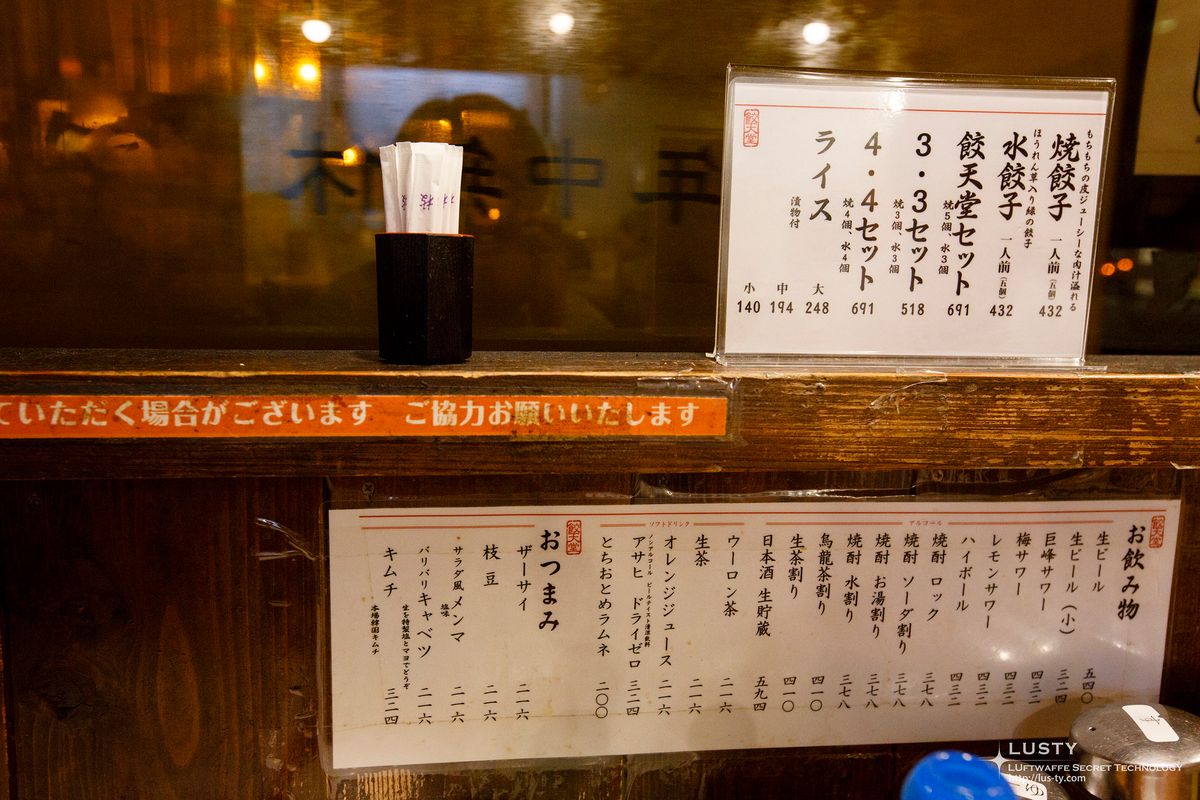 餃天堂
もちもちの皮ジューシーな肉汁溢れる
焼餃子 一人前(五個) 432
ほうれん草入り緑の餃子
水餃子 一人前(五個) 432
餃天堂セット 691
焼5個、水3個
3・3セット 518
焼3個、水3個
4・4セット 691
焼4個、水4個
ライス
漬物付
大 248
中 194
小 140
ていただく場合がございます ご協力お願いいたします
餃天堂
お飲み物
アルコール
生ビール 五四〇
生ビール(小) 三二四
巨峰サワー 三二四
梅サワー 四三二
レモンサワー 四三二
ハイボール 四三二
焼酎 ロック 三七八
焼酎 ソーダ割り 三七八
焼酎 お湯割り 三七八
焼酎 水割り 三七八
烏龍茶割り 四一〇
生茶割り 四一〇
日本酒 生貯蔵 五九四
ソフトドリンク
ウーロン茶 二一六
生茶 二一六
オレンジジュース 二一六
ノンアルコール ビールテイスト清涼飲料
アサヒ ドライゼロ 三二四
とちおとめラムネ 二〇〇
餃天堂
おつまみ
ザーサイ 二一六
枝豆 二一六
サラダ風メンマ 二一六
塩味
バリバリキャベツ 二一六
生を特製塩とマヨでどうぞ
キムチ 三二四
本場韓国キムチ
LUSTY
LUFTWAFFE SECRET TECHNOLOGY
http://lus-ty.com